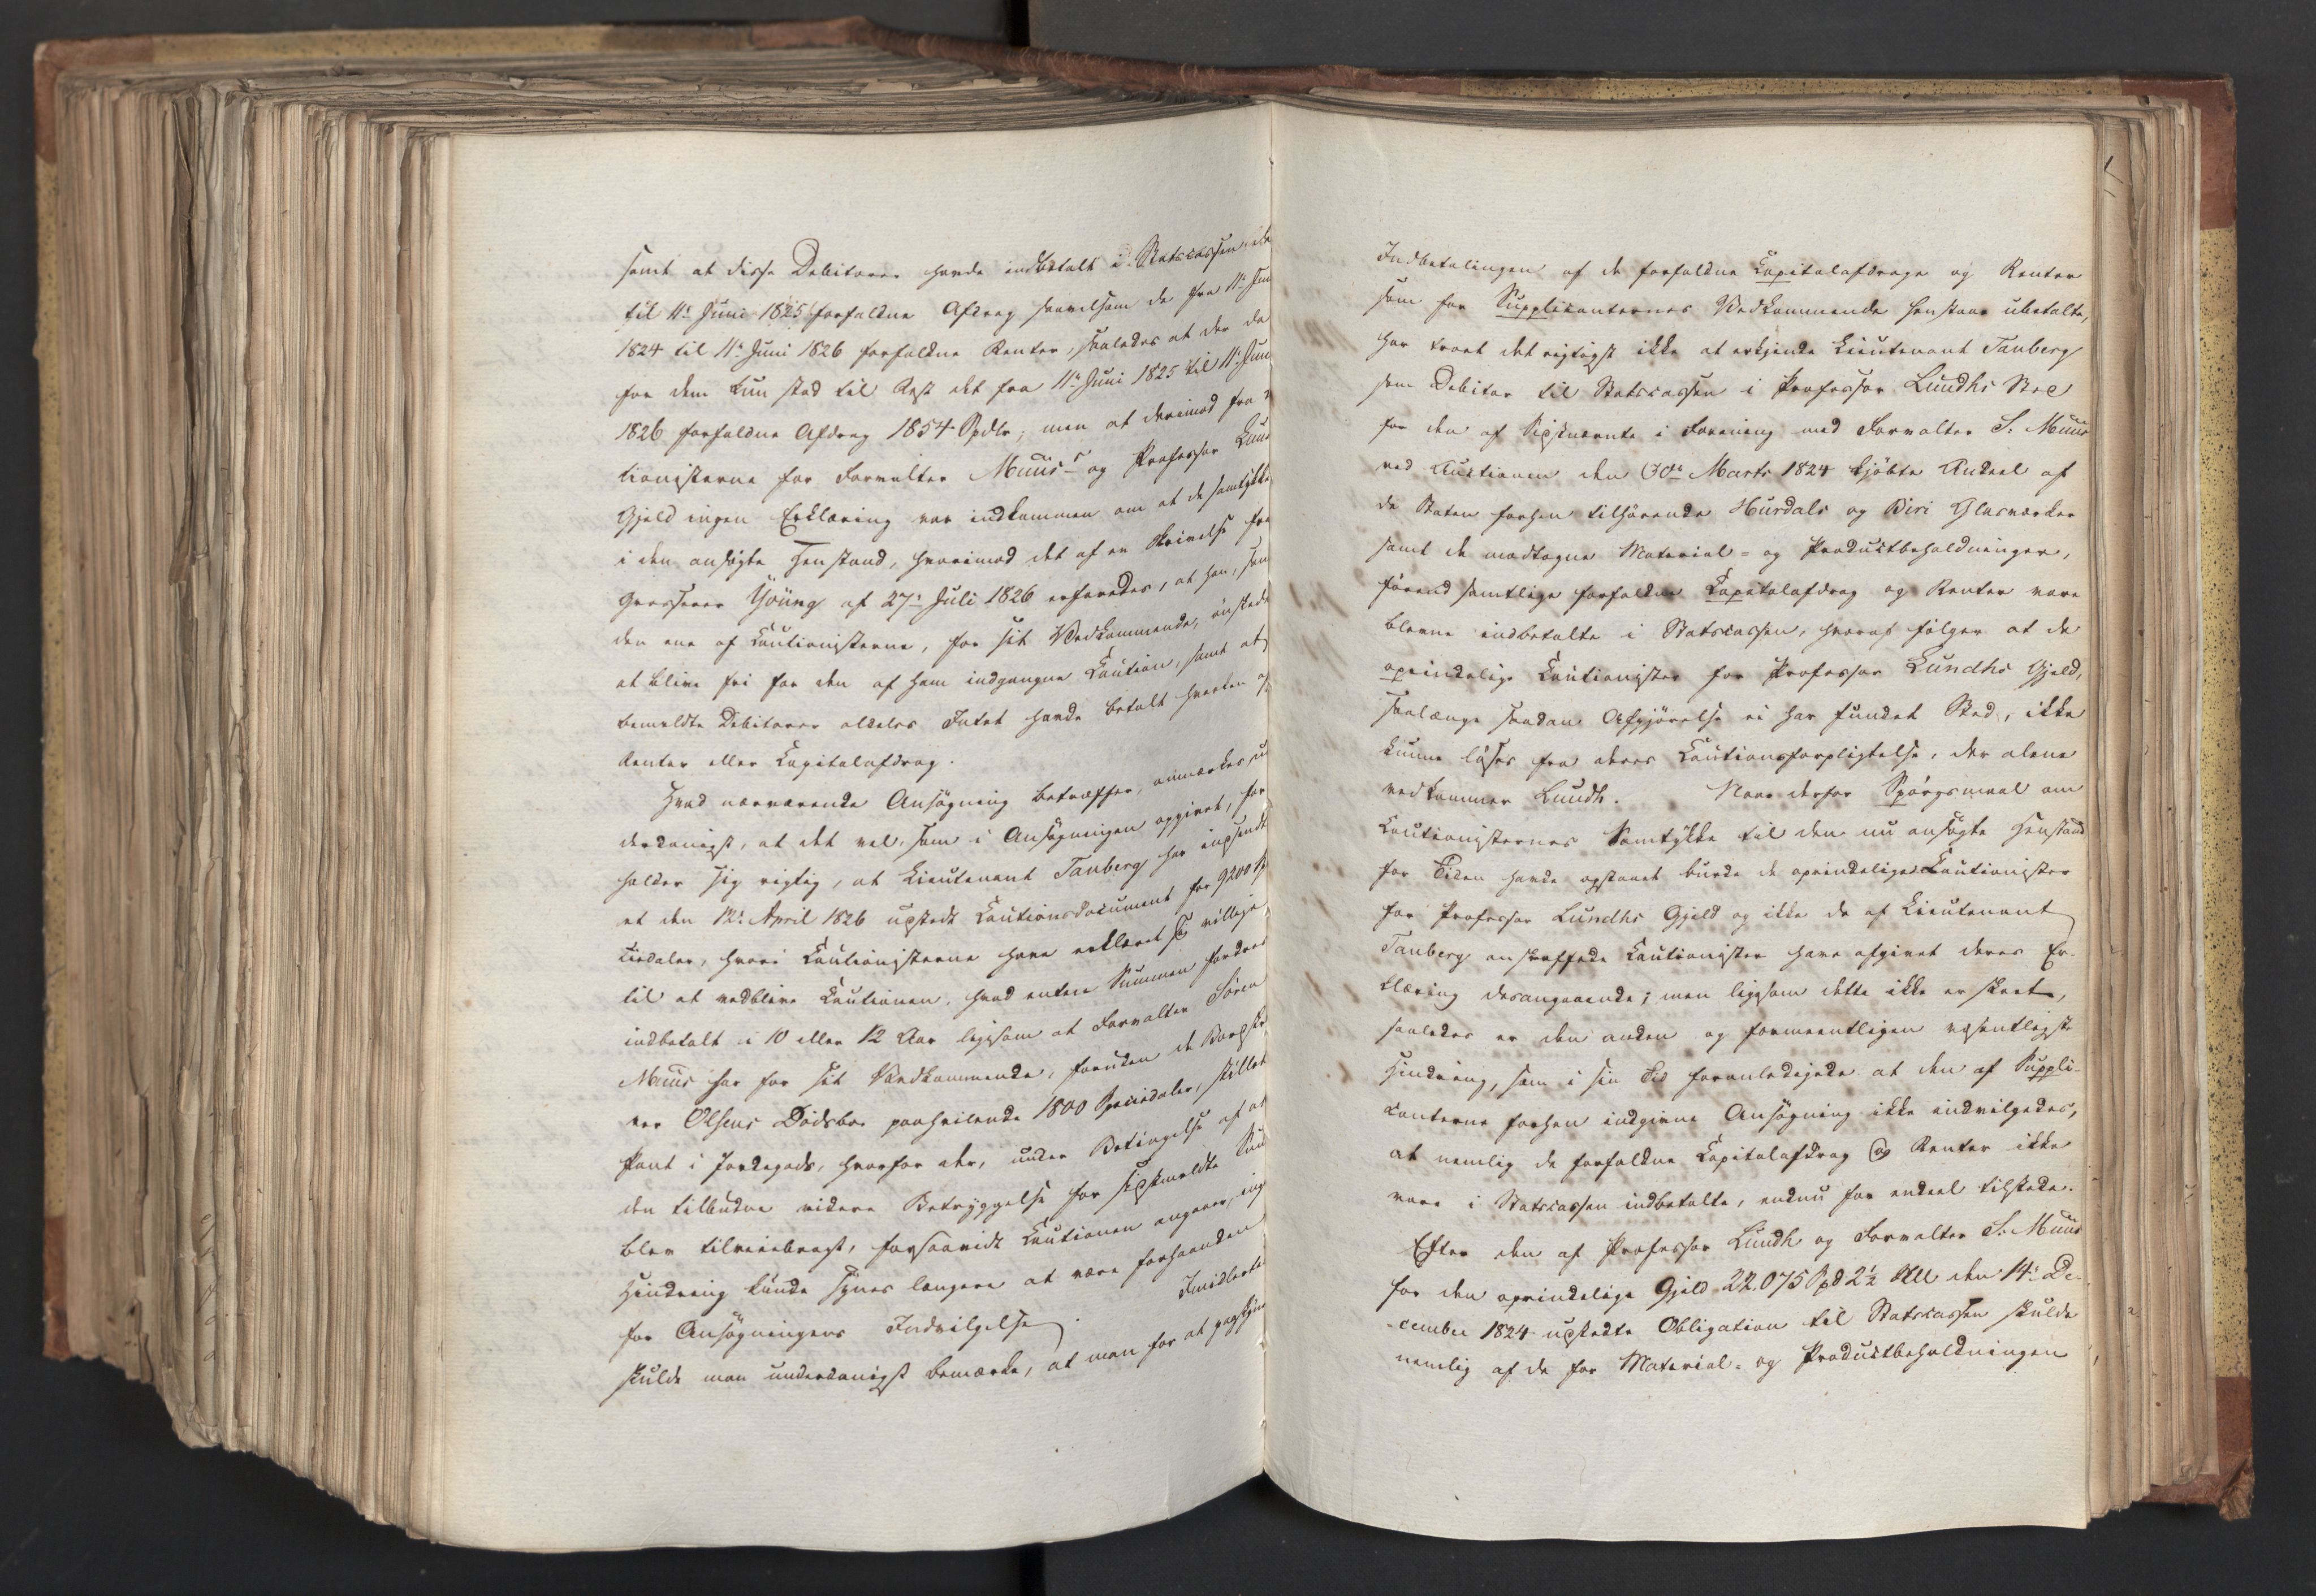 samt at disse Debitorer havde indbetalt i Statscassen
til 11te Juni 1825 forfaldne Afdrag saavelsom de fra 11te Jun
1824 til 11te Juni 1826 forfaldne Renter, saaledes at der da
for dem kun stod til Rest det fra 11te Juni 1825 til 11te Juni
1826 forfaldne Afdrag 1854 Spdlr; men at derimod fra
tionisterne for Forvalter Muus's og Professor Lund
Gjeld ingen Erklæring var indkommen om at de samtykke
i den ansøgte Henstand, hvorimod det af en Skrivelse fra
Grosserer Yoüng af 27de Juli 1826 erfaredes, at han, som
den ene af Cautionisterne, for sit Vedkommende, ønskede
at blive fri for den af ham indgangne Caution, samt at
bemeldte Debitorer aldeles Intet havde betalt hverken af
Renter eller Capitalafdrag.
Hvad nærværende Ansøgning betræffer, anmærkes un
derdanigst, at det vel, som i Ansøgningen opgivet, for
holder sig rigtig, at Lieutenant Tanberg har indsendt
et den 12te April 1826 udstedt Cautionsdocument for 9200 Sp
ciedaler, hvori Cautionisterne have erklæret sig villige
til at vedblive Cautionen, hvad enten Summen fordres
indbetalt i 10 eller 12 Aar ligesom at Forvalter Søren
Muus har for sit Vedkommende, foruden de
ver Olsens Dødsboe paahvilende 1800 Speciedaler, stillet
Pant i Jordegods, hvorfor der, under Betingelse af at
den tilbudne videre Betryggelse for sidstmeldte Sum
blev tilveiebragt, forsaavidt Cautionen angaaer, ing
Hindring kunde synes længere at være forhaanden
for Ansøgningens Indvilgelse. Imidlertid
skulde man underdanigst bemærke, at man for at paaskynde
Indbetalingen af de forfaldne Capitalafdrage og Renter
som for Supplicanternes Vedkommende henstaae ubetalte,
har troet det rigtigst ikke at erkjende Lieutenant Tanberg
som Debitor til Statscassen i Professor Lundhs Sted
for den af Sidstnævnte i Forening med Forvalter S. Muus
ved Auctionen den 30te Marts 1824 kjøbte Andeel af
de Staten forhen tilhørende Hurdals og Biri Glasværker
samt de modtagne Material- og Productbeholdninger,
førend samtlige forfaldne Capitalafdrag og Renter vare
blevne indbetalte i Statscassen, hvoraf følger at de
oprindelige Cautionister for Professor Lundhs Gjeld,
saalænge saadan Afgjørelse ei har fundet Sted, ikke
kunne løses fra deres Cautionsforpligtelse, der alene
vedkommer Lundh. Naar derfor Spørgsmaal om
Cautionisternes Samtykke til den nu ansøgte Henstand
for Tiden havde opstaaet burde de oprindelige Cautionister
for Professor Lundhs Gjeld og ikke de af Lieutenant
Tanberg anskaffede Cautionister have afgivet deres Er-
klæring desangaaende; men ligesom dette ikke er skeet,
saaledes er den anden og formeentligen væsentligste
Hindring, som i sin Tid foranledigede at den af Suppli-
canterne forhen indgivne Ansøgning ikke indvilgedes,
at nemlig de forfaldne Capitalafdrag og Renter ikke
vare i Statscassen indbetalte, endnu for endeel tilstede.
Efter den af Professor Lundh og Forvalter S. Muus
for den oprindelige Gjeld 22,075 Spd 2½ ß den 14de De-
cember 1824 udstedte Obligation til Statscassen skulde
nemlig af de for Material- og Productbeholdningen